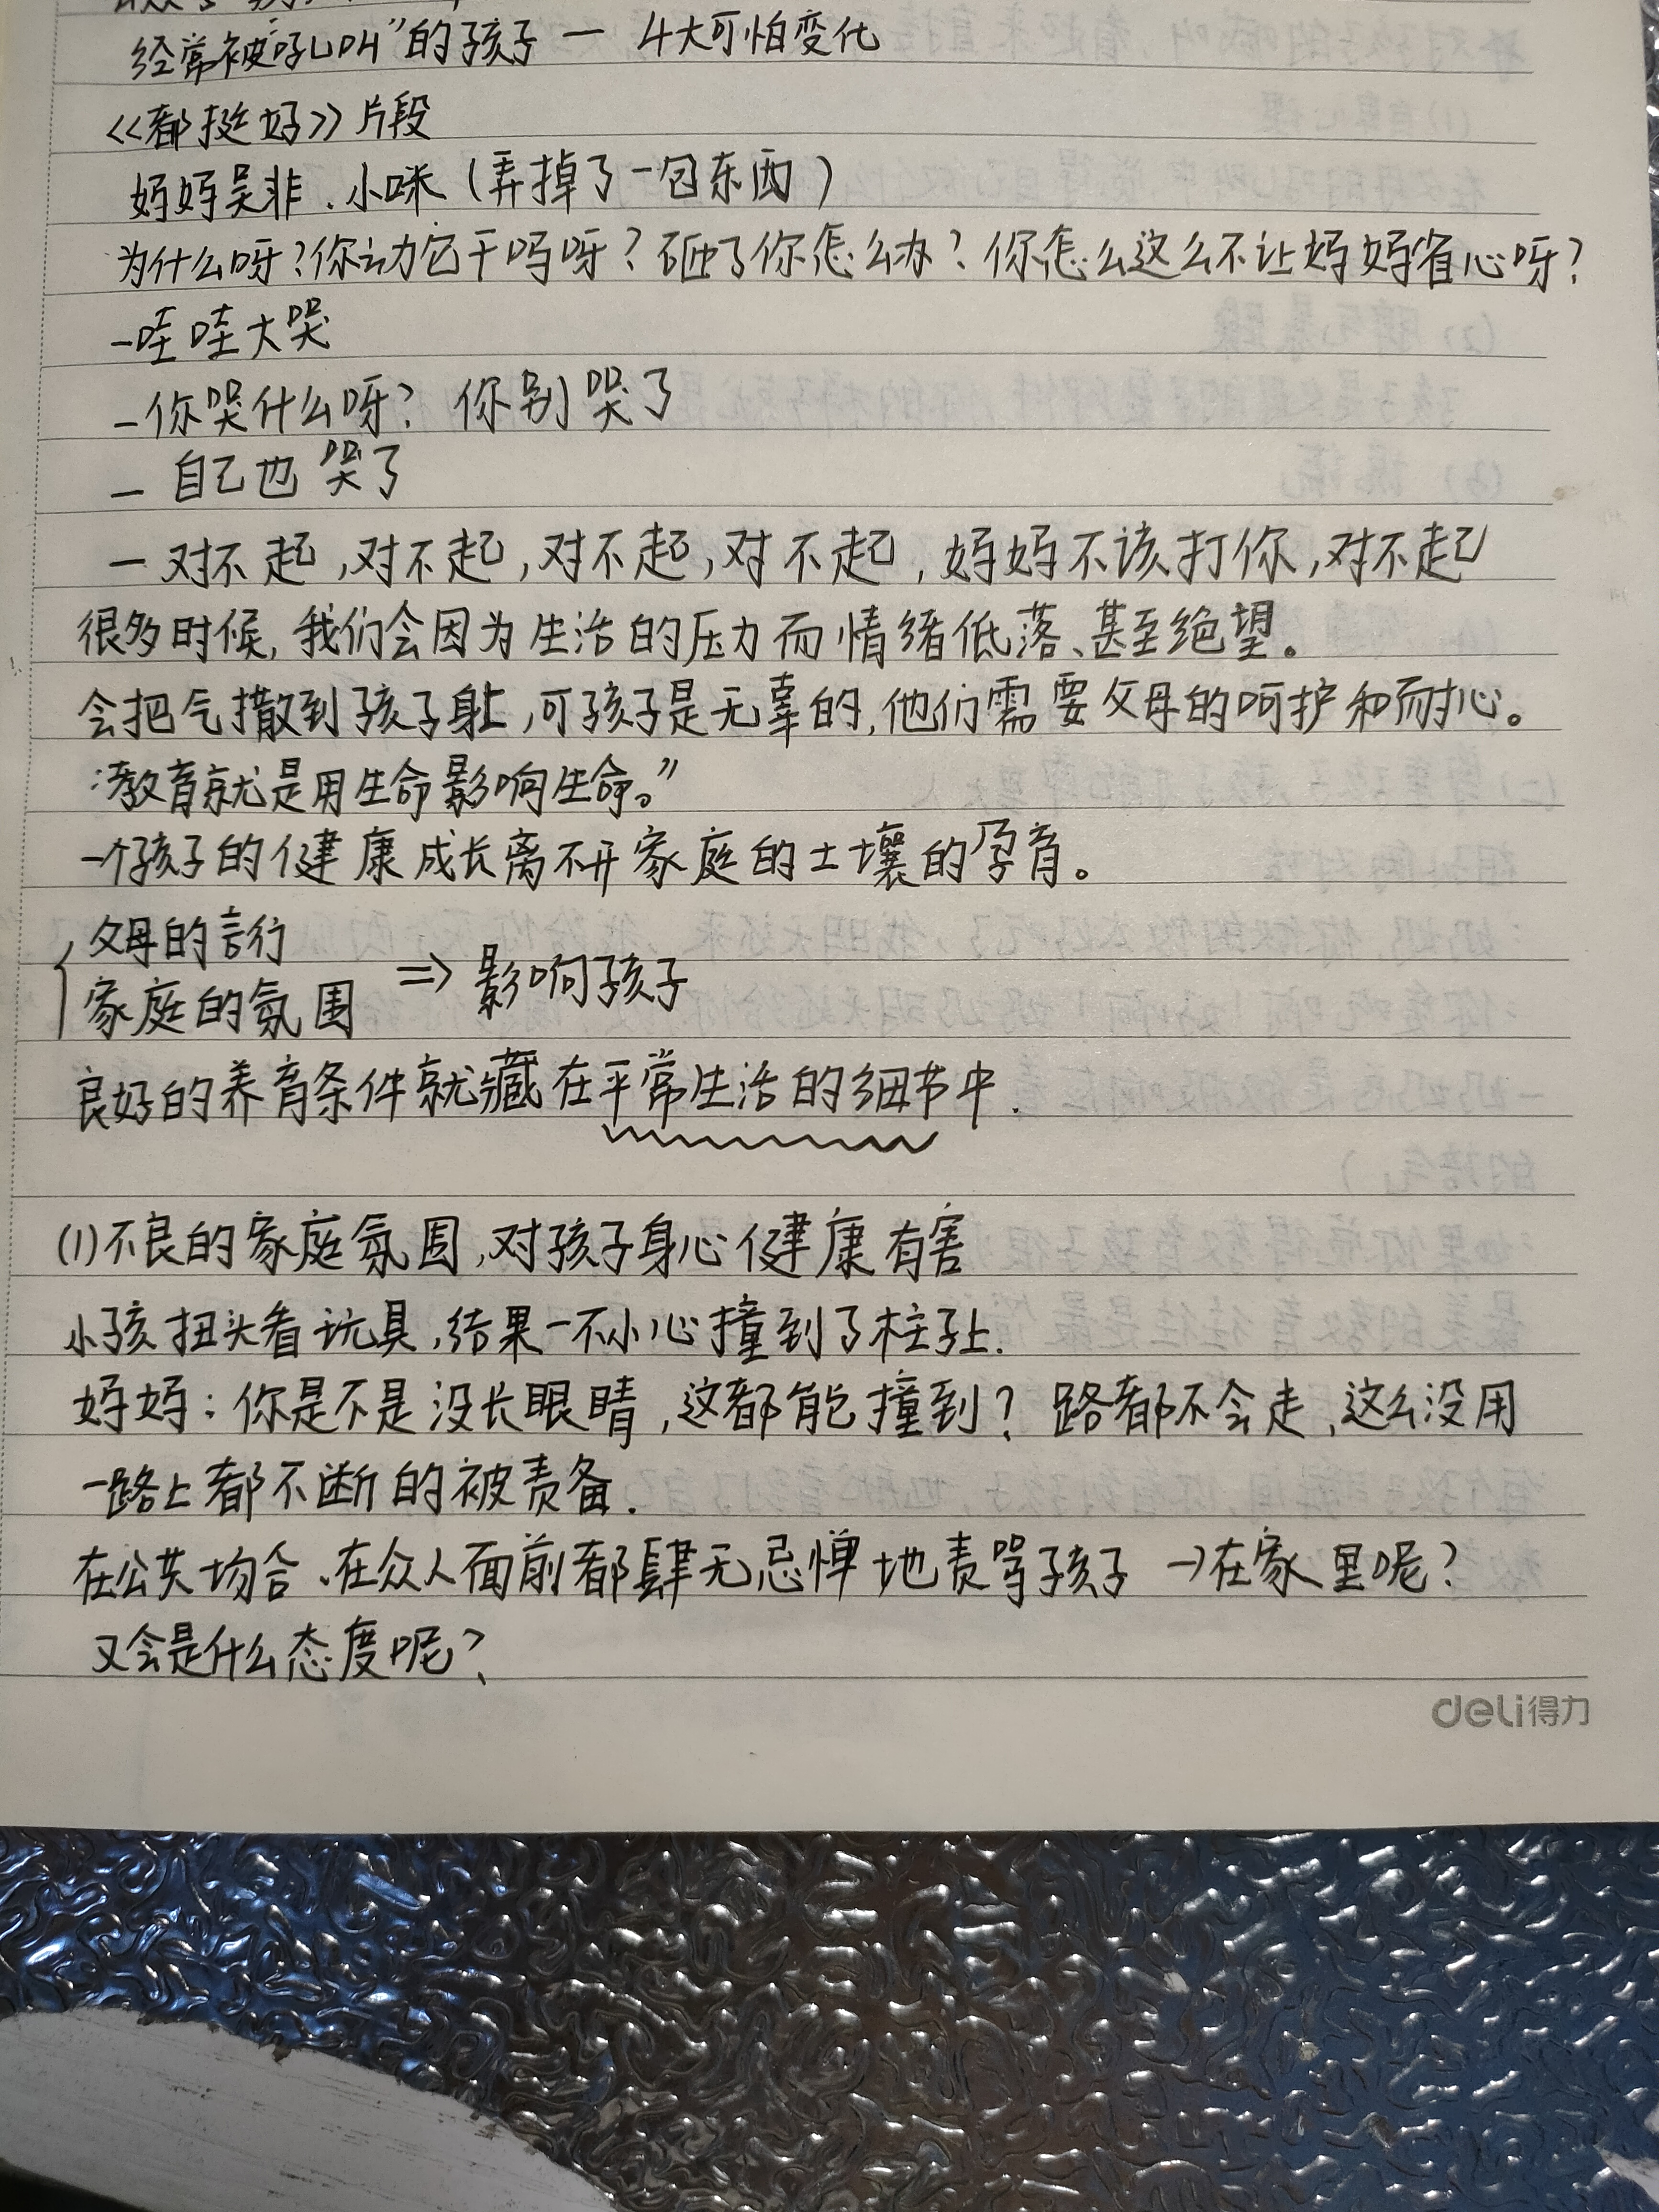 经常被"吼叫"的孩子 — 4大可怕变化
《都挺好》片段
妈妈吴非、小咪（弄掉了一包东西）
为什么呀？你动它干吗呀？砸了你怎么办？你怎么这么不让妈妈省心呀？
-哇哇大哭
-你哭什么呀？你别哭了
- 自己也哭了
- 对不起,对不起,对不起,对不起,妈妈不该打你,对不起
很多时候,我们会因为生活的压力而情绪低落、甚至绝望。
会把气撒到孩子身上,可孩子是无辜的,他们需要父母的呵护和耐心。
"教育就是用生命影响生命。"
一个孩子的健康成长离不开家庭的土壤的孕育。
父母的言行
家庭的氛围 => 影响孩子
良好的养育条件就藏在平常生活的细节中.
(1)不良的家庭氛围,对孩子身心健康有害
小孩扭头看玩具,结果一不小心撞到了柱子上.
妈妈：你是不是没长眼睛,这都能撞到？路都不会走,这么没用
一路上都不断的被责备.
在公共场合、在众人面前都肆无忌惮地责骂孩子 →在家里呢？
又会是什么态度呢？
deli得力